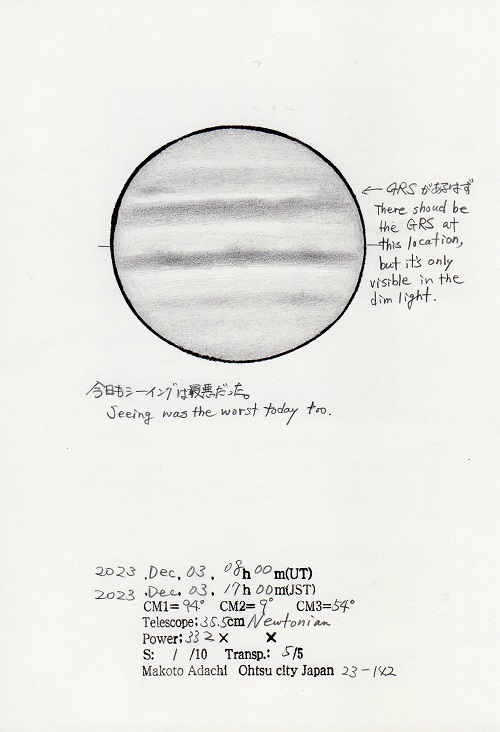 ← GRSがあるはず
There shoud be
the GRS at
this location,
but it's only
visible in the
dim light.
今日もシーイングは最悪だった。
Seeing was the worst today too.
2023 .Dec. 03, 08h 00m(UT)
2023 .Dec. 03, 17h 00m(JST)
CM1= 94° CM2= 9° CM3= 54°
Telescope; 35.5cm Newtonian
Power; 332× ×
S: 1 /10 Transp.: 5/5
Makoto Adachi Ohtsu city Japan 23-142